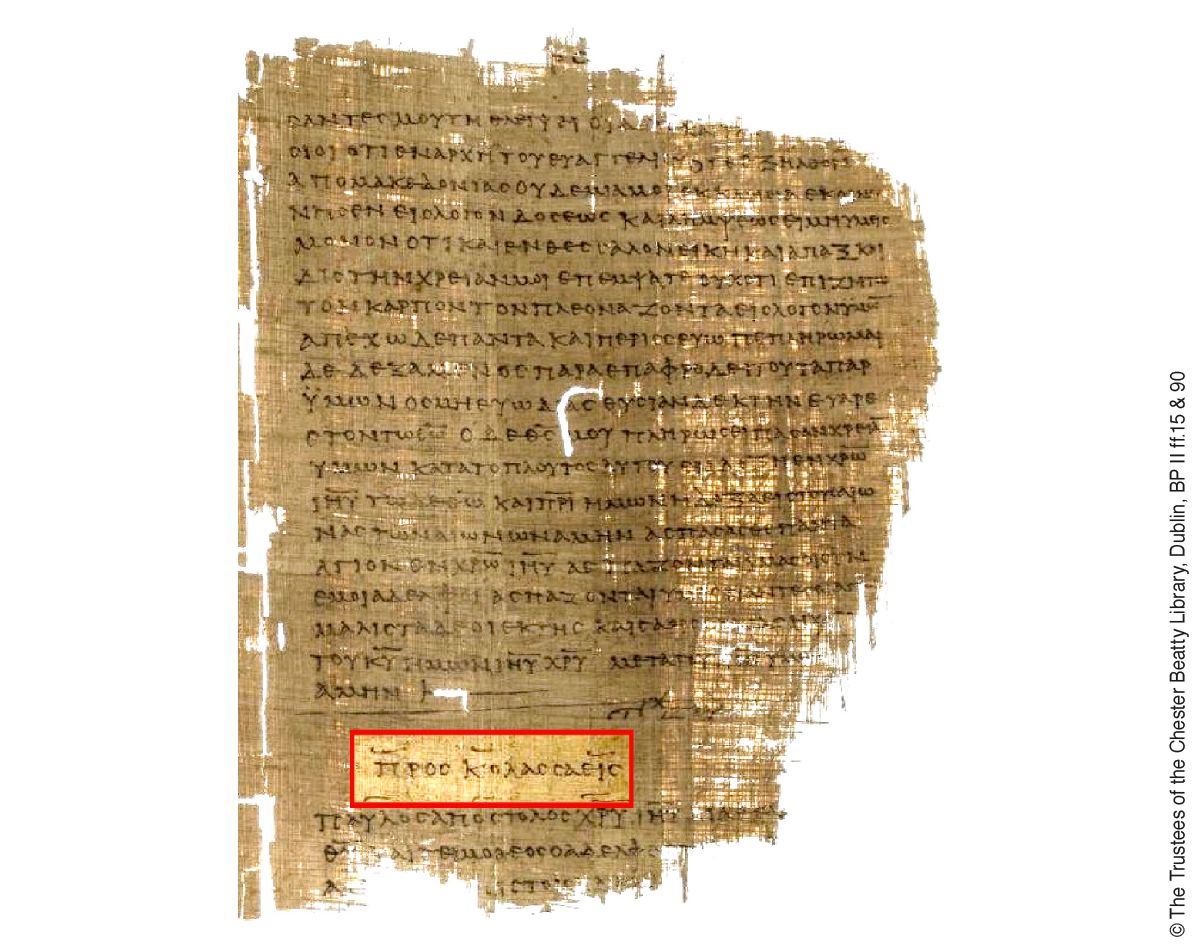 ϹΑΝΤΕϹ ΜΟΥ ΤΗ ΘΛΕΙΨΕΙ
ϹΙΟΙ ΟΤΙ ΕΝ ΑΡΧΗ ΤΟΥ ΕΥΑΓΓΕΛΙΟΥ ΟΤΕ ΕΞΗΛΘΟΝ
ΑΠΟ ΜΑΚΕΔΟΝΙΑϹ ΟΥΔΕΜΙΑ ΜΟΙ ΕΚΚΛΗϹΙΑ ΕΚΟΙΝΩ
ΝΗϹΕΝ ΕΙϹ ΛΟΓΟΝ ΔΟϹΕΩϹ ΚΑΙ ΛΗΜΨΕΩϹ ΕΙ ΜΗ ΥΜΕΙϹ
ΜΟΝΟΝ ΟΤΙ ΚΑΙ ΕΝ ΘΕϹϹΑΛΟΝΕΙΚΗ ΚΑΙ ΑΠΑΞ ΚΑΙ
ΔΙϹ ΤΗΝ ΧΡΕΙΑΝ ΜΟΙ ΕΠΕΜΨΑΤΕ ΟΥΧ ΟΤΙ ΕΠΙΖΗΤΩ
ΤΟΝ ΚΑΡΠΟΝ ΤΟΝ ΠΛΕΟΝΑΖΟΝΤΑ ΕΙϹ ΛΟΓΟΝ ΥΜΩ̅
ΑΠΕΧΩ ΔΕ ΠΑΝΤΑ ΚΑΙ ΠΕΡΙϹϹΕΥΩ ΠΕΠΛΗΡΩΜΑΙ
ΔΕ ΔΕΞΑΜΕΝΟϹ ΠΑΡΑ ΕΠΑΦΡΟΔΕΙΤΟΥ ΤΑ ΠΑΡ
Ϋ́ΜΩΝ ΟϹΜΗ ΕΥΩΔΙΑϹ ΘΥϹΙΑΝ ΔΕΚΤΗΝ ΕΥΑΡΕ
ϹΤΟΝ ΤΩ Θ̅Ω̅ Ο ΔΕ Θ̅Ϲ̅ ΜΟΥ ΠΛΗΡΩϹΕΙ ΠΑϹΑΝ ΧΡΕΙΑ̅
ΥΜΩΝ ΚΑΤΑ ΤΟ ΠΛΟΥΤΟϹ ΑΥΤΟΥ ΕΝ ΔΟΞΗ ΕΝ Χ̅Ρ̅Ω̅
Ι̅Η̅Υ̅ ΤΩ ΔΕ Θ̅Ω̅ ΚΑΙ Π̅Ρ̅Ι̅ ΗΜΩΝ Η ΔΟΞΑ ΕΙϹ ΤΟΥϹ ΑΙΩ
ΝΑϹ ΤΩΝ ΑΙΩΝΩΝ ΑΜΗΝ ΑϹΠΑϹΑϹΘΕ ΠΑΝΤΑ
ΑΓΙΟΝ ΕΝ Χ̅Ρ̅Ω̅ Ι̅Η̅Υ̅ ΑϹΠΑΖΟΝΤΑΙ ΥΜΑϹ ΟΙ ϹΥΝ
ΕΜΟΙ ΑΔΕΛΦΟΙ ΑϹΠΑΖΟΝΤΑΙ ΥΜΑϹ ΠΑΝΤΕϹ
ΜΑΛΙϹΤΑ ΔΕ ΟΙ ΕΚ ΤΗϹ ΚΑΙϹΑΡΟϹ
ΤΟΥ Κ̅Υ̅ ΗΜΩΝ Ι̅Η̅Υ̅ Χ̅Ρ̅Υ̅ ΜΕΤΑ
ΑΜΗΝ
ΠΡΟϹ ΚΟΛΑϹϹΑΕΙϹ
ΠΑΥΛΟϹ ΑΠΟϹΤΟΛΟϹ Χ̅Ρ̅Υ̅ Ι̅Η̅Υ̅
ΤΕΙΜΟΘΕΟϹ Ο ΑΔΕΛΦΟϹ
© The Trustees of the Chester Beatty Library, Dublin, BP II ff.15 & 90